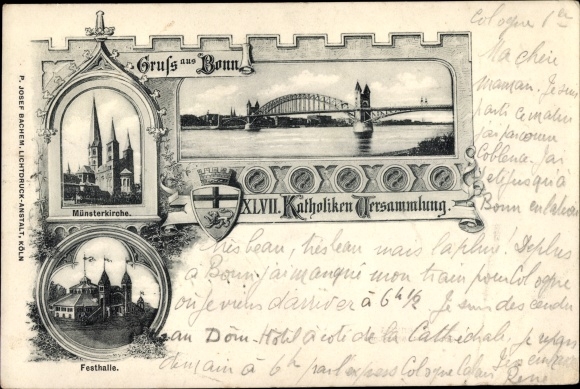 Gruſs aus Bonn.
P. JOSEF BACHEM, LICHTDRUCK-ANSTALT, KÖLN
Münsterkirche.
XLVII. Katholiken Versammlung.
Festhalle.
Cologne 1er
Ma chère
maman. Je suis
parti ce matin
j'ai parcouru
Coblence. J'ai
jusqu'à
Bonn en bateau
très beau, très beau mais la pluie! De plus
à Bonn j'ai manqué mon train pour Cologne
où je viens d'arriver à 6h ½ Je suis descendu
au Dom-Hotel à côté de la Cathédrale, je repars
demain à 6h par l'express Cologne Calais
Je t'embrasse
René